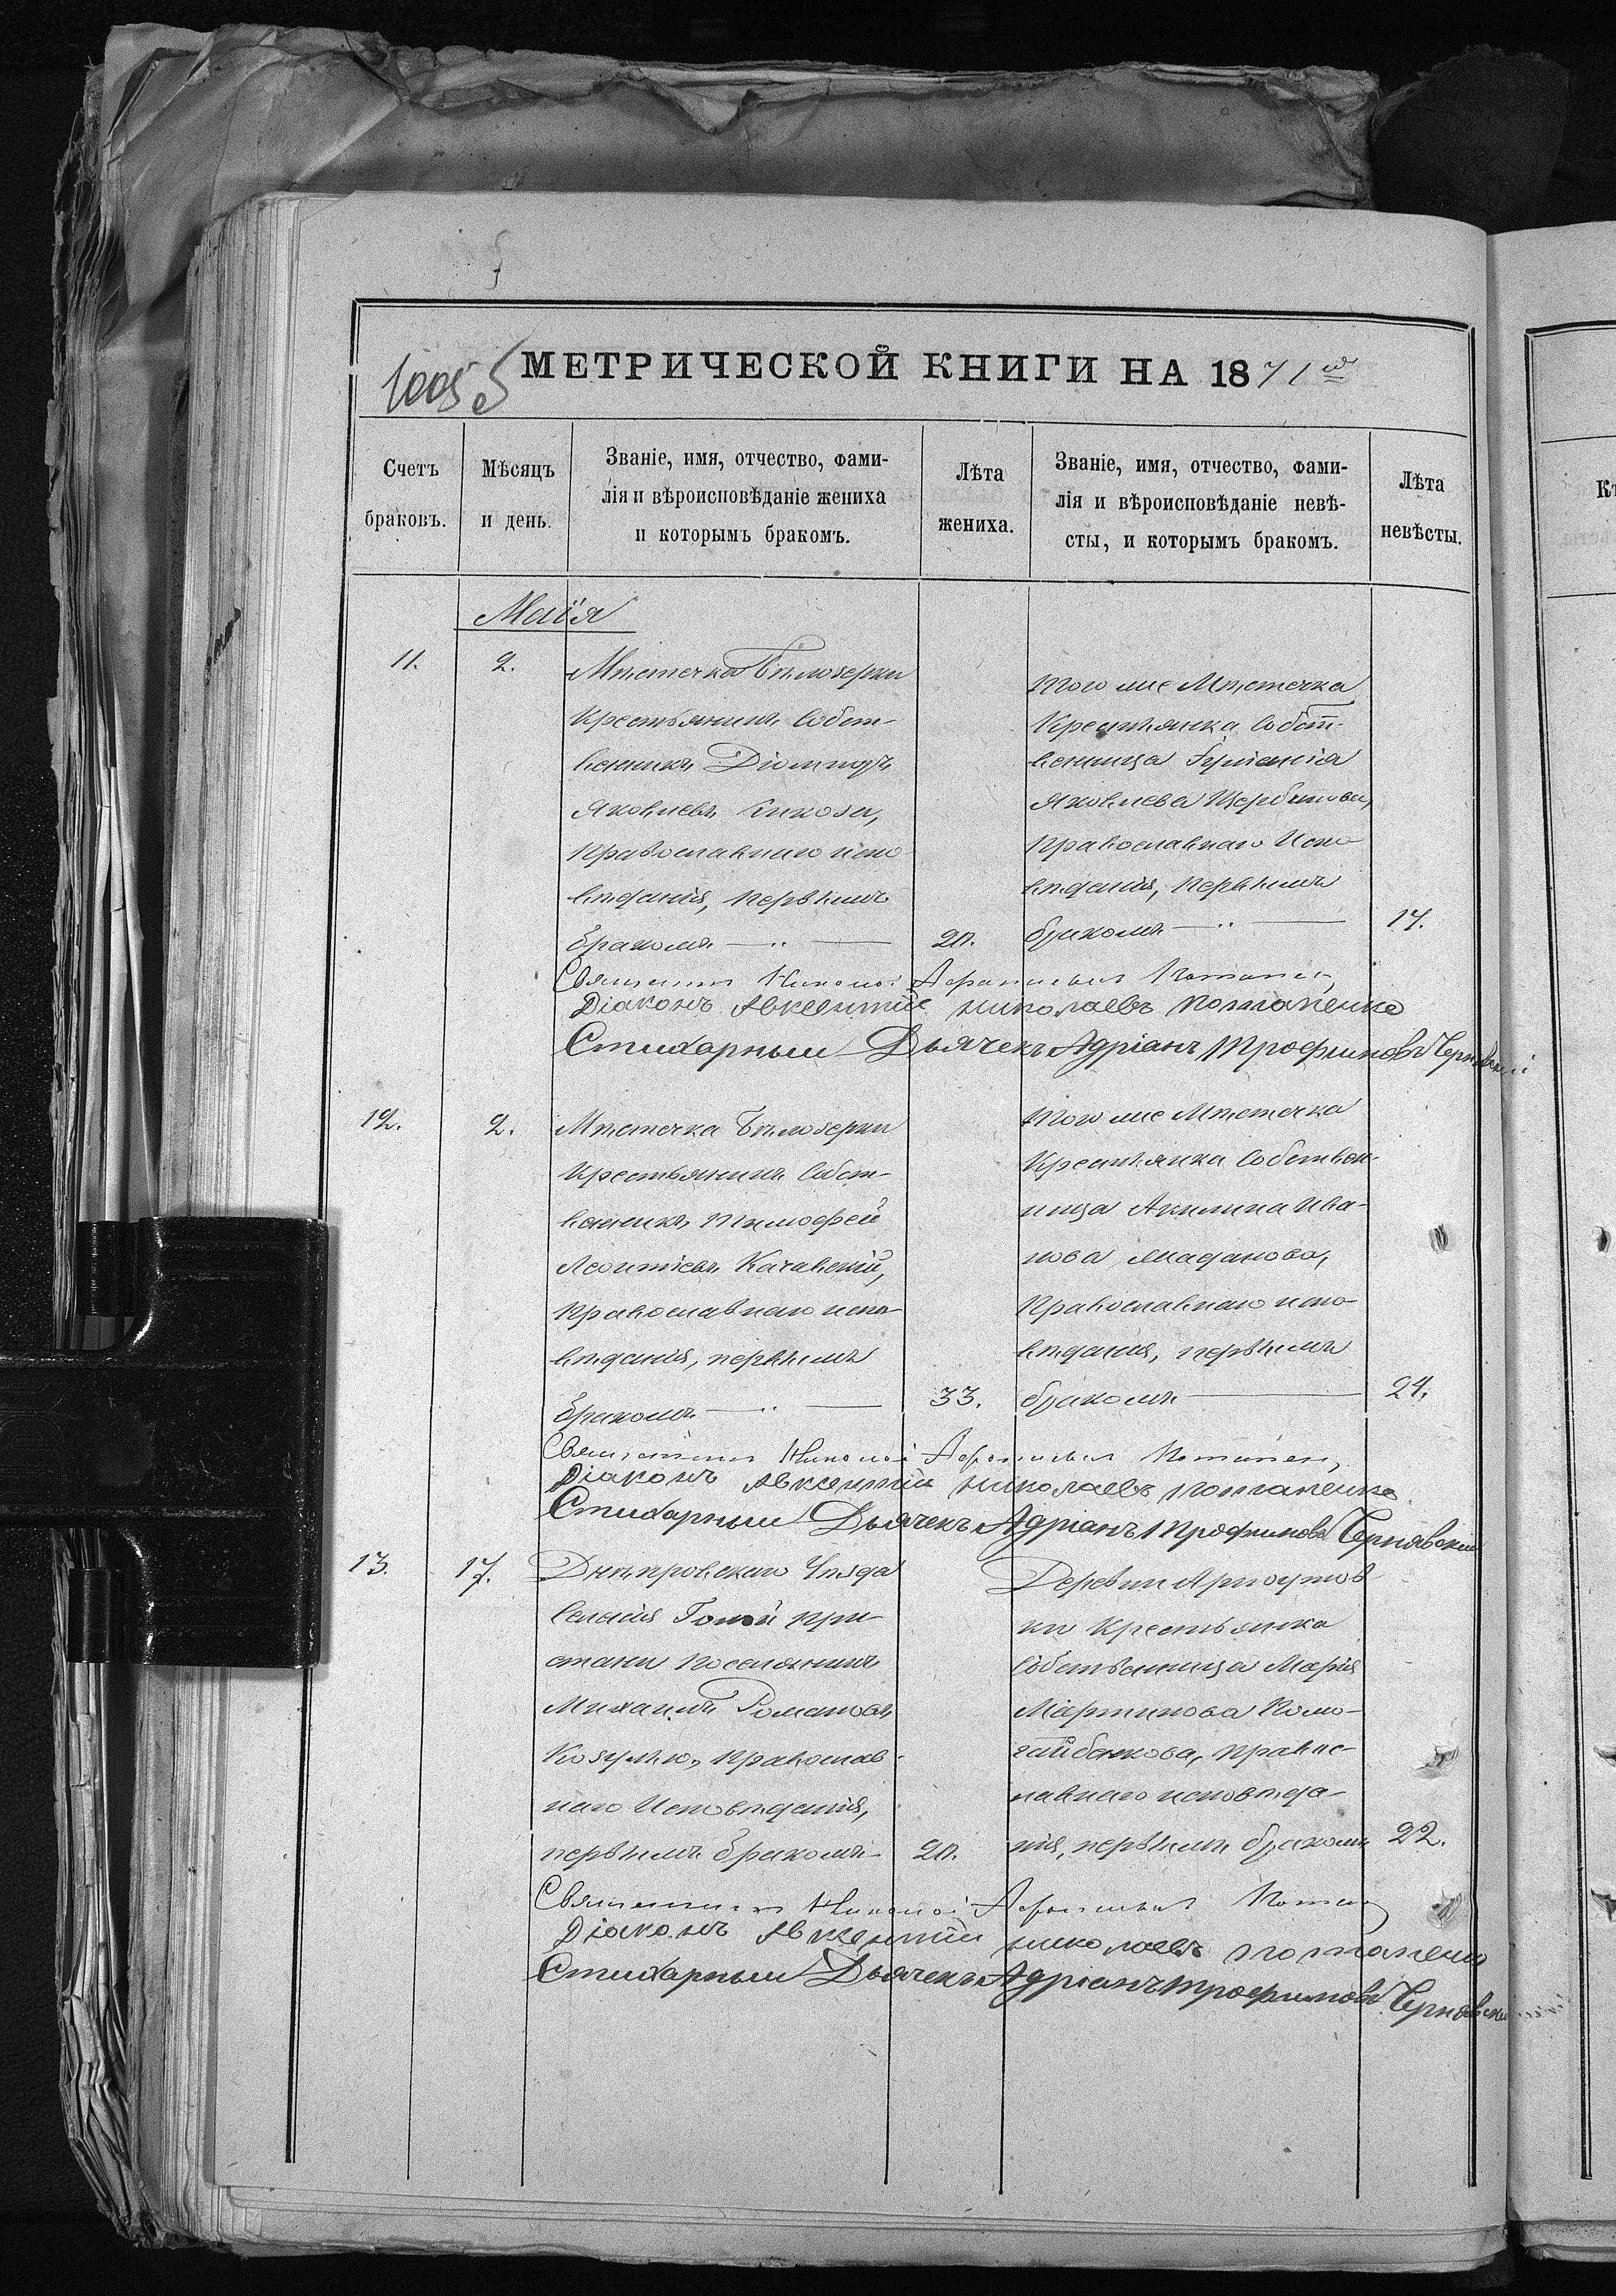 1005 об
МЕТРИЧЕСКОЙ КНИГИ НА 1871й
Счетъ
браковъ.
Мѣсяцъ
и день.
Званіе, имя, отчество, фами-
лія и вѣроисповѣданіе жениха
и которымъ бракомъ.
Лѣта
жениха.
Званіе, имя, отчество, фами-
лія и вѣроисповѣданіе невѣ-
сты, и которымъ бракомъ.
Лѣта
невѣсты.
Маія
11.
2.
Мѣстечка Бѣлозерки
Крестьянинъ Собст-
венникъ Діомидъ
Яковлевъ Кикоза,
Православнаго испо
вѣданія, первымъ
бракомъ
20.
Того же Мѣстечка
Крестьянка Собст-
венница
Яковлева Щербинова,
Православнаго Испо
вѣданія, первымъ
бракомъ
17.
Священникъ Николай Афанасьевъ
Діаконъ Авксентій Николаевъ Потапенко
Стихарный Дьячекъ Адріанъ Трофимовъ Чернявскій
12.
2.
Мѣстечка Бѣлозерки
Крестьянинъ Собст-
венникъ Тимофей
Леонтіевъ Качавскій,
Православнаго испо-
вѣданія, первымъ
бракомъ
33.
Того же Мѣстечка
Крестьянка Собствен-
ница Акилина Ива-
нова Жаданова,
Православнаго испо-
вѣданія, первымъ
бракомъ
24.
Священникъ Николай Афанасьевъ
Діаконъ Авксентій Николаевъ Потапенко
Стихарный Дьячекъ Адріанъ Трофимовъ Чернявскій
13.
17.
Днѣпровскаго Уѣзда
Селенія Голой при-
стани Поселянинъ
Михаилъ Романовъ
Козулько, Православ-
наго Исповѣданія,
первымъ бракомъ
20.
Деревни Аргоутов
ки Крестьянка
Собственница Марія
Мартинова Коло-
гайбакова, Правос-
лавнаго исповѣда-
нія, первымъ бракомъ
22.
Священникъ Николай Афанасьевъ
Діаконъ Авксентій Николаевъ Потапенко
Стихарный Дьячекъ Адріанъ Трофимовъ Чернявскій